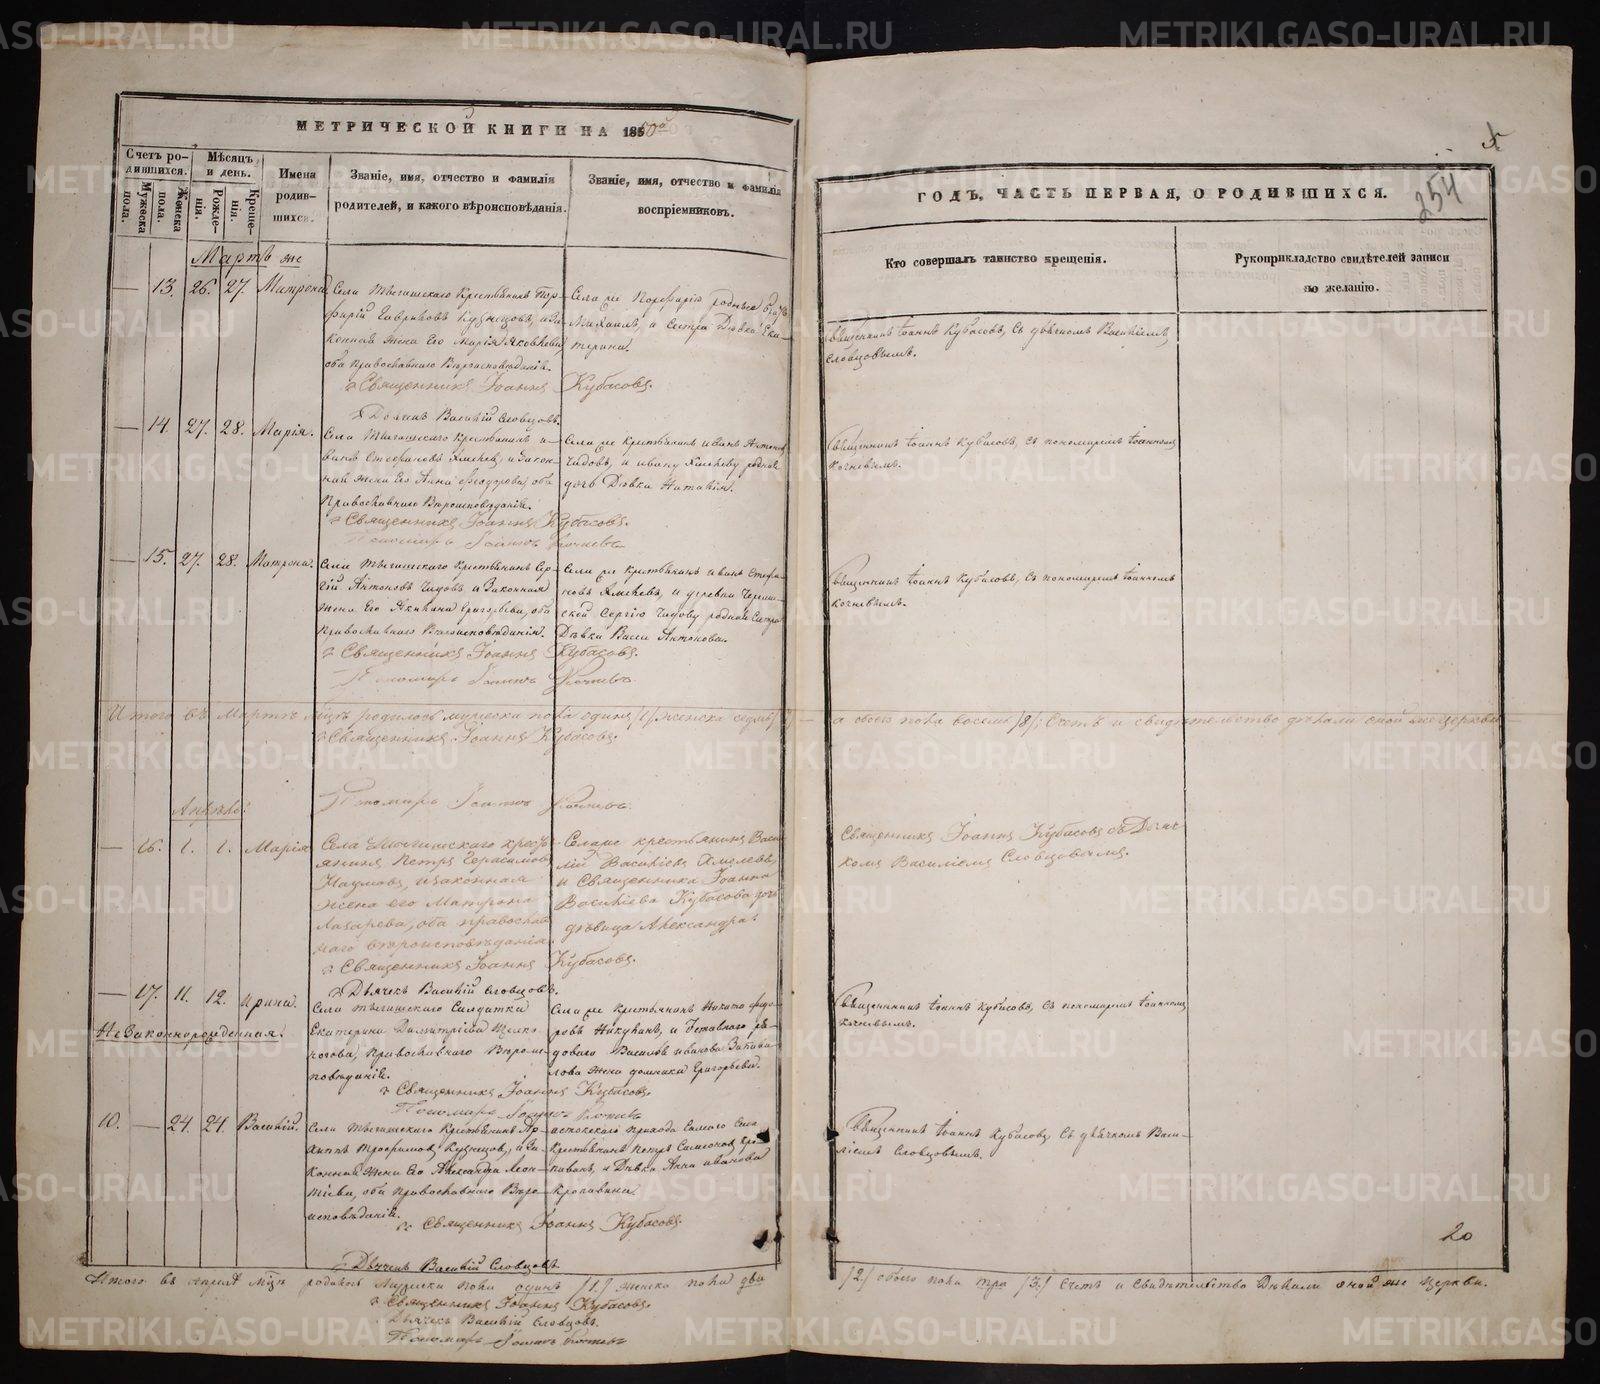 МЕТРИЧЕСКОЙ КНИГИ НА 1850й
Счетъ родившихся.
Мужеска пола.
Женска пола.
Мѣсяцъ и день.
Рожденія.
Крещенія.
Имена родившихся.
Званіе, имя, отчество и фамилія
родителей, и какого вѣроисповѣданія.
Званіе, имя, отчество и фамилія
воспріемниковъ.
ГОДЪ, ЧАСТЬ ПЕРВАЯ, О РОДИВШИХСЯ.
254
Кто совершалъ таинство крещенія.
Рукоприкладство свидѣтелей записи
по желанію.
Мартъ же
— 13. 26. 27. Матрона
Села Крестьянинъ Пор-
фирій Гавриловъ Кузнецовъ, и За-
конная жена Его Марія Яковлева,
оба Православнаго Вѣроисповѣданія.
Села же Порфирію родный братъ
Михаилъ, и сестра Дѣвка Ека-
терина.
Священникъ Іоаннъ Кубасовъ, Съ дьячкомъ Василіемъ
Словцовымъ.
Священникъ Іоаннъ Кубасовъ.
Дьячекъ Василій Словцовъ.
— 14. 27. 28. Марія.
Села Крестьянинъ И-
ванъ Стефановъ Хмелевъ, и Закон-
ная жена Его Анна Феодорова, оба
Православнаго Вѣроисповѣданія.
Села же Крестьянинъ Иванъ Антоновъ
Чадовъ, и Ивану Хмелеву родная
дочь Дѣвка Наталія.
Священникъ Іоаннъ Кубасовъ, Съ пономаремъ Іоанномъ
Кочневымъ.
Священникъ Іоаннъ Кубасовъ.
Пономарь Іоаннъ Кочневъ
— 15. 27. 28. Матрона.
Села Крестьянинъ Сер-
гій Антоновъ Чадовъ и Законная
жена Его Акилина Григорьева, оба
Православнаго Вѣроисповѣданія.
Села же Крестьянинъ Иванъ Стефа-
новъ Хмелевъ, и деревни
Сергію Чадову родная Сестра
Дѣвка Васса Антонова.
Священникъ Іоаннъ Кубасовъ, Съ пономаремъ Іоанномъ
Кочневымъ.
Священникъ Іоаннъ Кубасовъ.
Пономарь Іоаннъ Кочневъ
Итого въ Мартѣ м-цѣ родилось мужеска пола одинъ /1/ женска седмь /7/ — а обоего пола восемь /8/; Счетъ и свидѣтельство дѣлали оной же церкви —
Священникъ Іоаннъ Кубасовъ.
Пономарь Іоаннъ Кочневъ.
Апрѣль:
— 16. 1. 1. Марія
Села кресть-
янинъ Петръ Герасимовъ
Наумовъ, и законная
жена его Матрона
Лазарева, оба православ-
наго вѣроисповѣданія.
Села же крестьянинъ Васи-
лій Василіевъ Хмелевъ,
и Священника Іоанна
Василіева Кубасова дочь
дѣвица Александра.
Священникъ Іоаннъ Кубасовъ съ Дьяч-
комъ Василіемъ Словцовымъ.
Священникъ Іоаннъ Кубасовъ.
Дьячекъ Василій Словцовъ.
— 17. 11. 12. Ирина.
Незаконнорожденная.
Села Солдатка
Екатерина Димитріева
Православнаго Вѣроис-
повѣданія.
Села же Крестьянинъ Никита Федо-
ровъ и
Василія Иванова
жена Домника Григорьева.
Священникъ Іоаннъ Кубасовъ, Съ пономаремъ Іоанномъ
Кочневымъ.
Священникъ Іоаннъ Кубасовъ.
Пономарь Іоаннъ Кочневъ
10. — 24. 24. Василій.
Села Крестьянинъ Ар-
хиппъ Трофимовъ Кузнецовъ, и За-
конная жена Его Александра Леон-
тіева, оба Православнаго Вѣро-
исповѣданія.
прихода Самаго Села
Крестьянинъ Петръ Кро-
пивинъ, и Дѣвка Анна Иванова
Кропивина.
Священникъ Іоаннъ Кубасовъ Съ дьячкомъ Васи-
ліемъ Словцовымъ.
Священникъ Іоаннъ Кубасовъ.
Дьячекъ Василій Словцовъ.
20
Итого въ Апрѣлѣ м-цѣ родилось Мужеска пола одинъ /1./ женска пола два /2/ обоего пола три /3./ Счетъ и Свидѣтельство Дѣлали оной же церкви.
Священникъ Іоаннъ Кубасовъ.
Дьячекъ Василій Словцовъ.
Пономарь Іоаннъ Кочневъ
METRIKI.GASO-URAL.RU